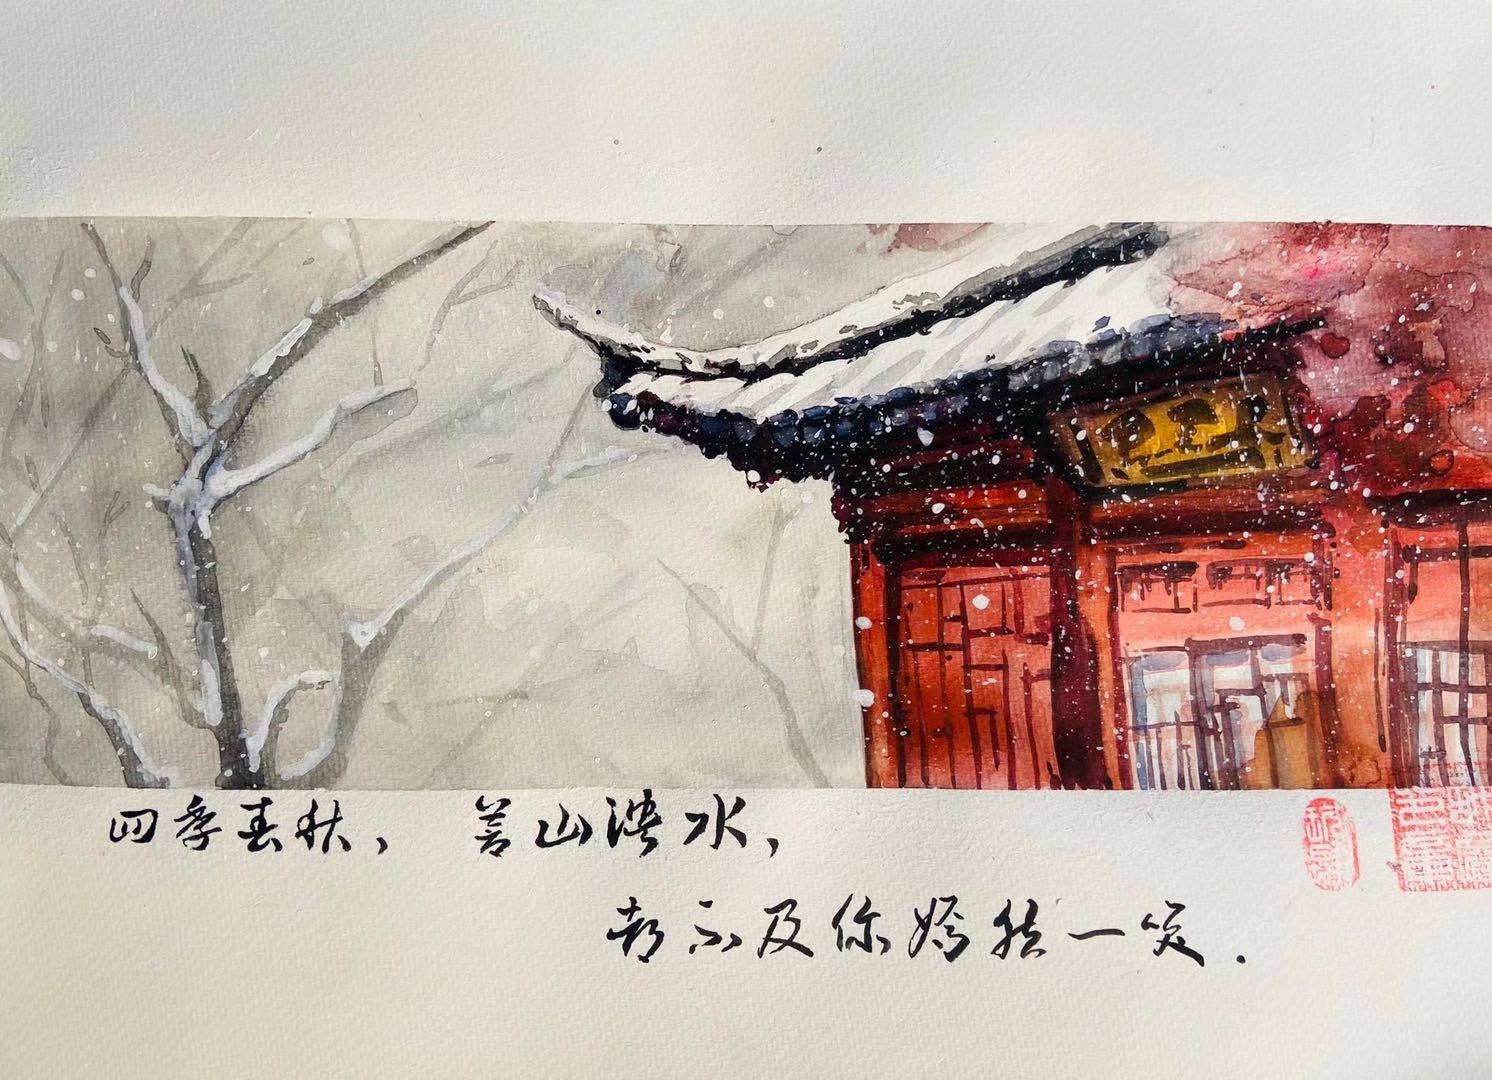 四季春秋，苍山泱水，
都不及你嫣然一笑.